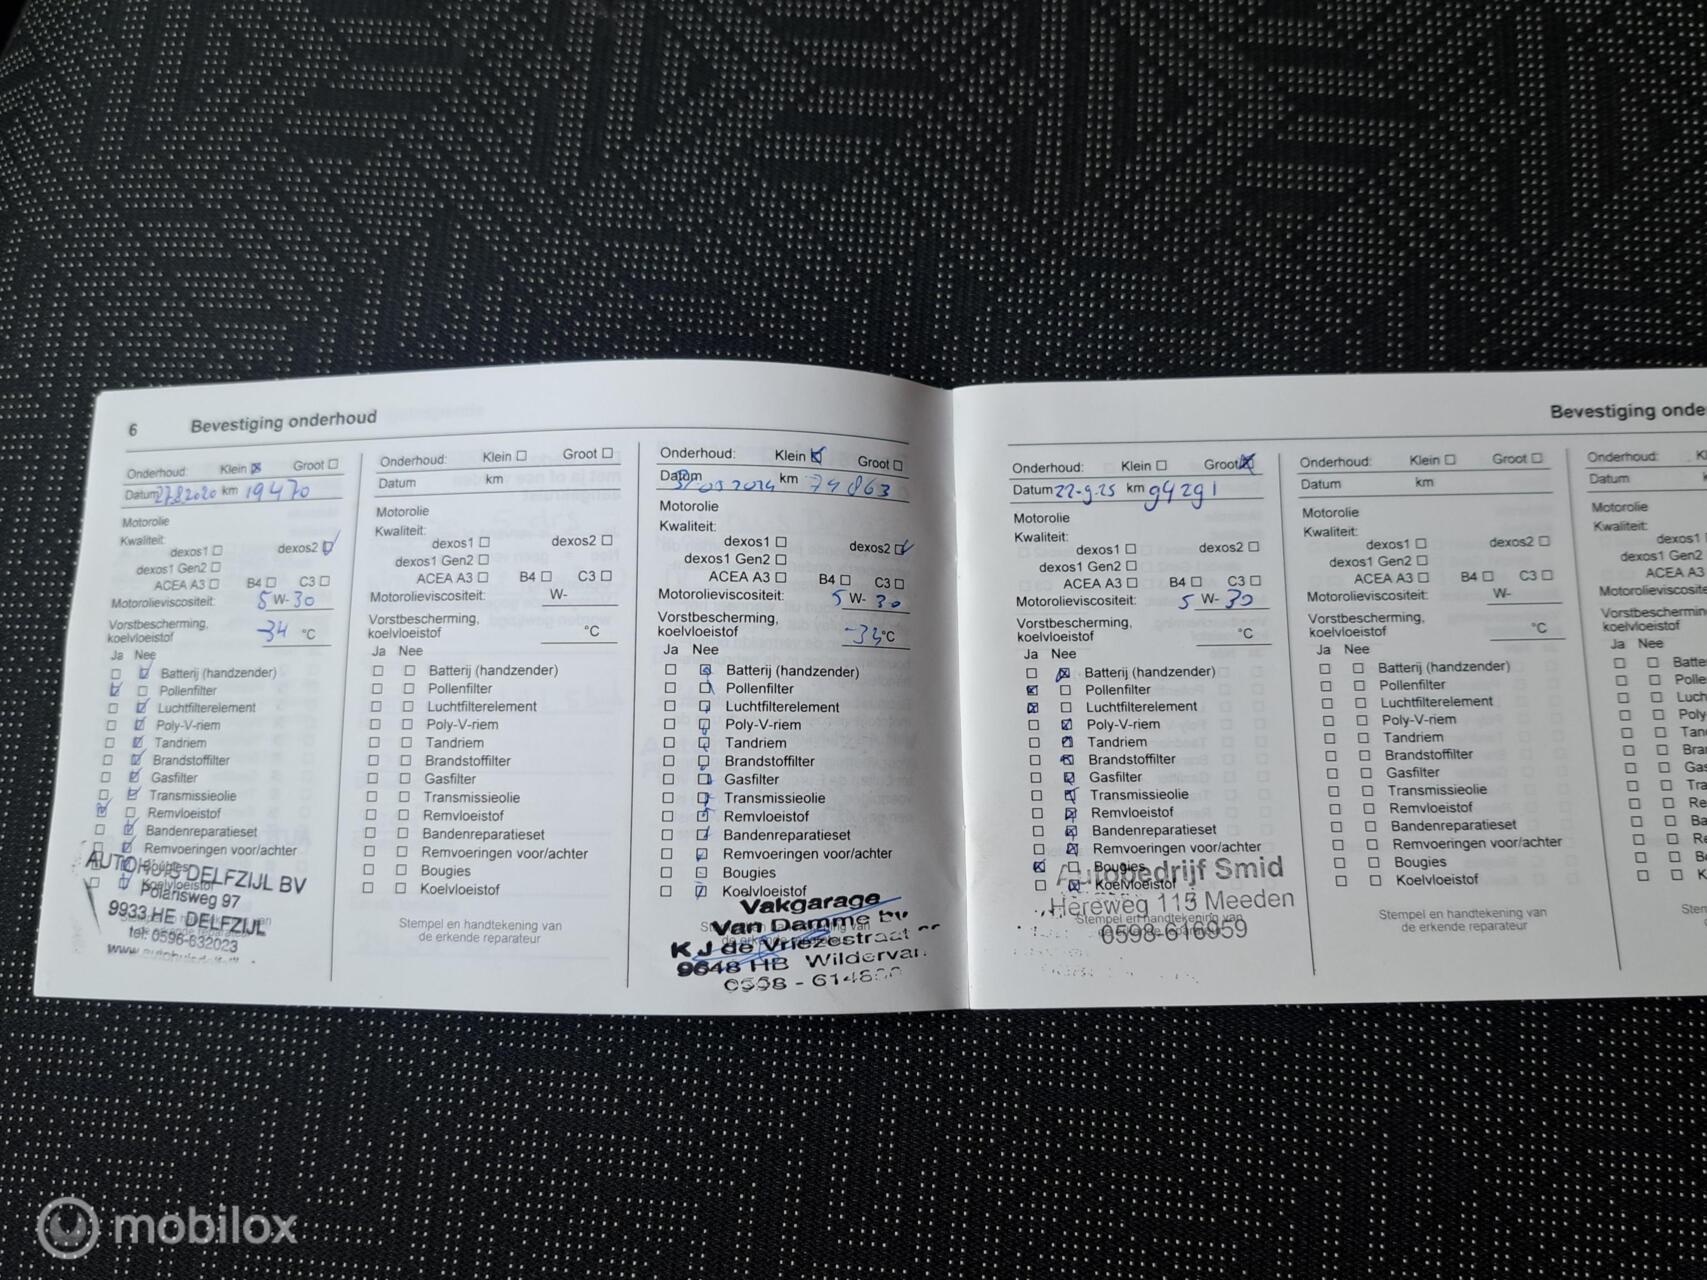 6 Bevestiging onderhoud
Onderhoud: Klein Groot
Datum 27.8.2020 km 19470
Motorolie
Kwaliteit:
dexos1 dexos2
dexos1 Gen2
ACEA A3 B4 C3
Motorolieviscositeit: 5 W- 30
Vorstbescherming,
koelvloeistof -34 °C
Ja Nee
Batterij (handzender)
Pollenfilter
Luchtfilterelement
Poly-V-riem
Tandriem
Brandstoffilter
Gasfilter
Transmissieolie
Remvloeistof
Bandenreparatieset
Remvoeringen voor/achter
Bougies
Koelvloeistof
AUTOHUIS DELFZIJL BV
Polarisweg 97
9933 HE DELFZIJL
tel: 0596-632023
Onderhoud: Klein Groot
Datum km
Motorolie
Kwaliteit:
dexos1 dexos2
dexos1 Gen2
ACEA A3 B4 C3
Motorolieviscositeit: W-
Vorstbescherming,
koelvloeistof °C
Ja Nee
Batterij (handzender)
Pollenfilter
Luchtfilterelement
Poly-V-riem
Tandriem
Brandstoffilter
Gasfilter
Transmissieolie
Remvloeistof
Bandenreparatieset
Remvoeringen voor/achter
Bougies
Koelvloeistof
Stempel en handtekening van
de erkende reparateur
Onderhoud: Klein Groot
Datum km 74863
Motorolie
Kwaliteit:
dexos1 dexos2
dexos1 Gen2
ACEA A3 B4 C3
Motorolieviscositeit: 5 W- 30
Vorstbescherming,
koelvloeistof °C
Ja Nee
Batterij (handzender)
Pollenfilter
Luchtfilterelement
Poly-V-riem
Tandriem
Brandstoffilter
Gasfilter
Transmissieolie
Remvloeistof
Bandenreparatieset
Remvoeringen voor/achter
Bougies
Koelvloeistof
Vakgarage
Van Damme bv
K J de Vriezestraat
9648 HB Wildervank
0598 -
Bevestiging onde
Onderhoud: Klein Groot
Datum 22-9-25 km 94291
Motorolie
Kwaliteit:
dexos1 dexos2
dexos1 Gen2
ACEA A3 B4 C3
Motorolieviscositeit: 5 W- 30
Vorstbescherming,
koelvloeistof °C
Ja Nee
Batterij (handzender)
Pollenfilter
Luchtfilterelement
Poly-V-riem
Tandriem
Brandstoffilter
Gasfilter
Transmissieolie
Remvloeistof
Bandenreparatieset
Remvoeringen voor/achter
Bougies
Koelvloeistof
Autobedrijf Smid
Hereweg 115 Meeden
Stempel en handtekening van
0598-616959
Onderhoud: Klein Groot
Datum km
Motorolie
Kwaliteit:
dexos1 dexos2
dexos1 Gen2
ACEA A3 B4 C3
Motorolieviscositeit: W-
Vorstbescherming,
koelvloeistof °C
Ja Nee
Batterij (handzender)
Pollenfilter
Luchtfilterelement
Poly-V-riem
Tandriem
Brandstoffilter
Gasfilter
Transmissieolie
Remvloeistof
Bandenreparatieset
Remvoeringen voor/achter
Bougies
Koelvloeistof
Stempel en handtekening van
de erkende reparateur
Onderhoud: Kl
Datum
Motorolie
Kwaliteit:
dexos1
dexos1 Gen2
ACEA A3
Motorolieviscosite
Vorstbescherming,
koelvloeistof
Ja Nee
Batte
Polle
Luch
Poly
Tan
Bra
Gas
Tra
Re
Ba
Re
Bo
K
Stem
mobilox